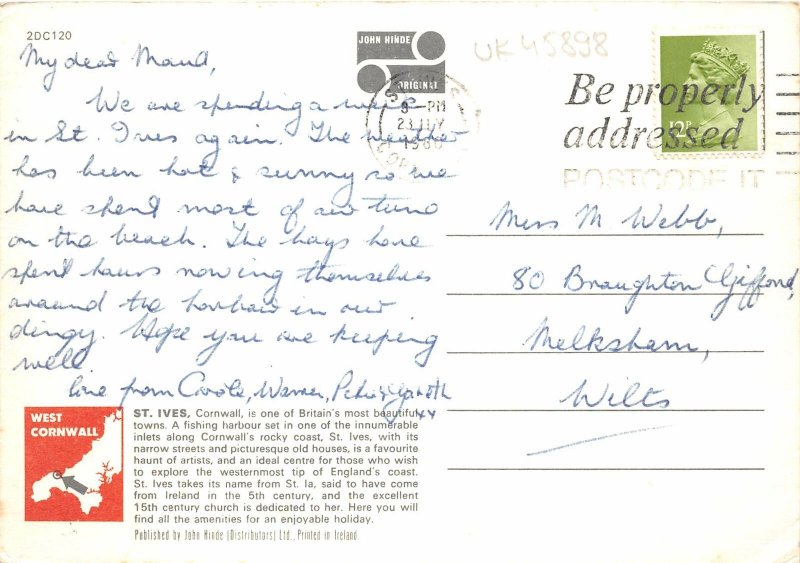 2DC120
JOHN HINDE
ORIGINAL
UK45898
My dear Maud,
We are spending a week
in St. Ives again. The weather
has been hot & sunny so we
have spent most of our time
on the beach. The boys have
spent hours rowing themselves
around the harbour in our
dingy. Hope you are keeping
well
love from Carole, Warner, Peter & Gareth
xx
ST. IVES
9-PM
23 JLY
1980
CORNWALL
Be properly
addressed
POSTCODE IT
12P
Miss M Webb,
80 Broughton Gifford,
Melksham,
Wilts
WEST
CORNWALL
ST. IVES, Cornwall, is one of Britain's most beautiful
towns. A fishing harbour set in one of the innumerable
inlets along Cornwall's rocky coast, St. Ives, with its
narrow streets and picturesque old houses, is a favourite
haunt of artists, and an ideal centre for those who wish
to explore the westernmost tip of England's coast.
St. Ives takes its name from St. Ia, said to have come
from Ireland in the 5th century, and the excellent
15th century church is dedicated to her. Here you will
find all the amenities for an enjoyable holiday.
Published by John Hinde (Distributors) Ltd., Printed in Ireland.